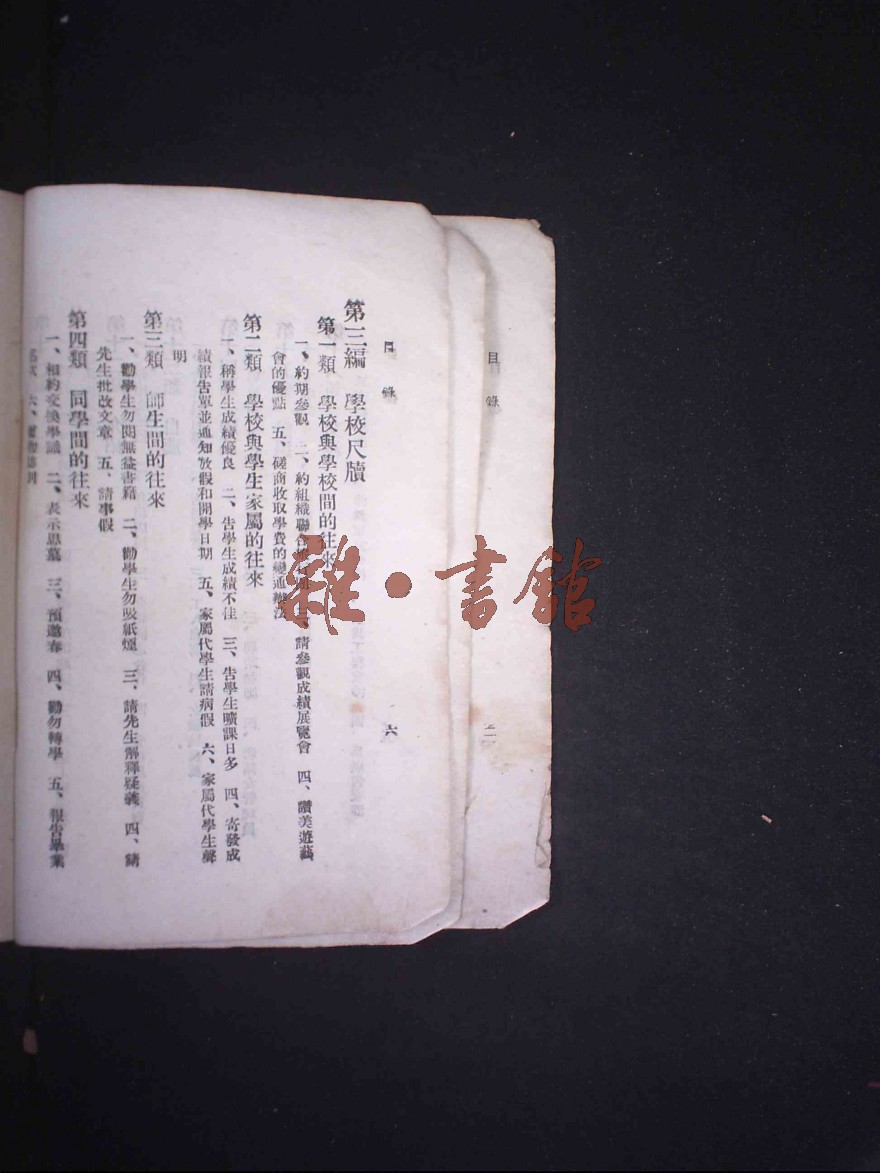 目錄
二
目錄
六
第三編 學校尺牘
第一類 學校與學校間的往來
一、約期參觀 二、約組織聯合 三、請參觀成績展覽會 四、讚美遊藝
會的優點 五、磋商收取學費的變通辦法
第二類 學校與學生家屬的往來
一、稱學生成績優良 二、告學生成績不佳 三、告學生曠課日多 四、寄發成
績報告單並通知放假和開學日期 五、家屬代學生請病假 六、家屬代學生聲
明
第三類 師生間的往來
一、勸學生勿閱無益書籍 二、勸學生勿吸紙煙 三、請先生解釋疑義 四、請
先生批改文章 五、請事假
第四類 同學間的往來
一、相約交換學識 二、表示思慕 三、預邀春 四、勸勿轉學 五、報告畢業
六、
雜·書館